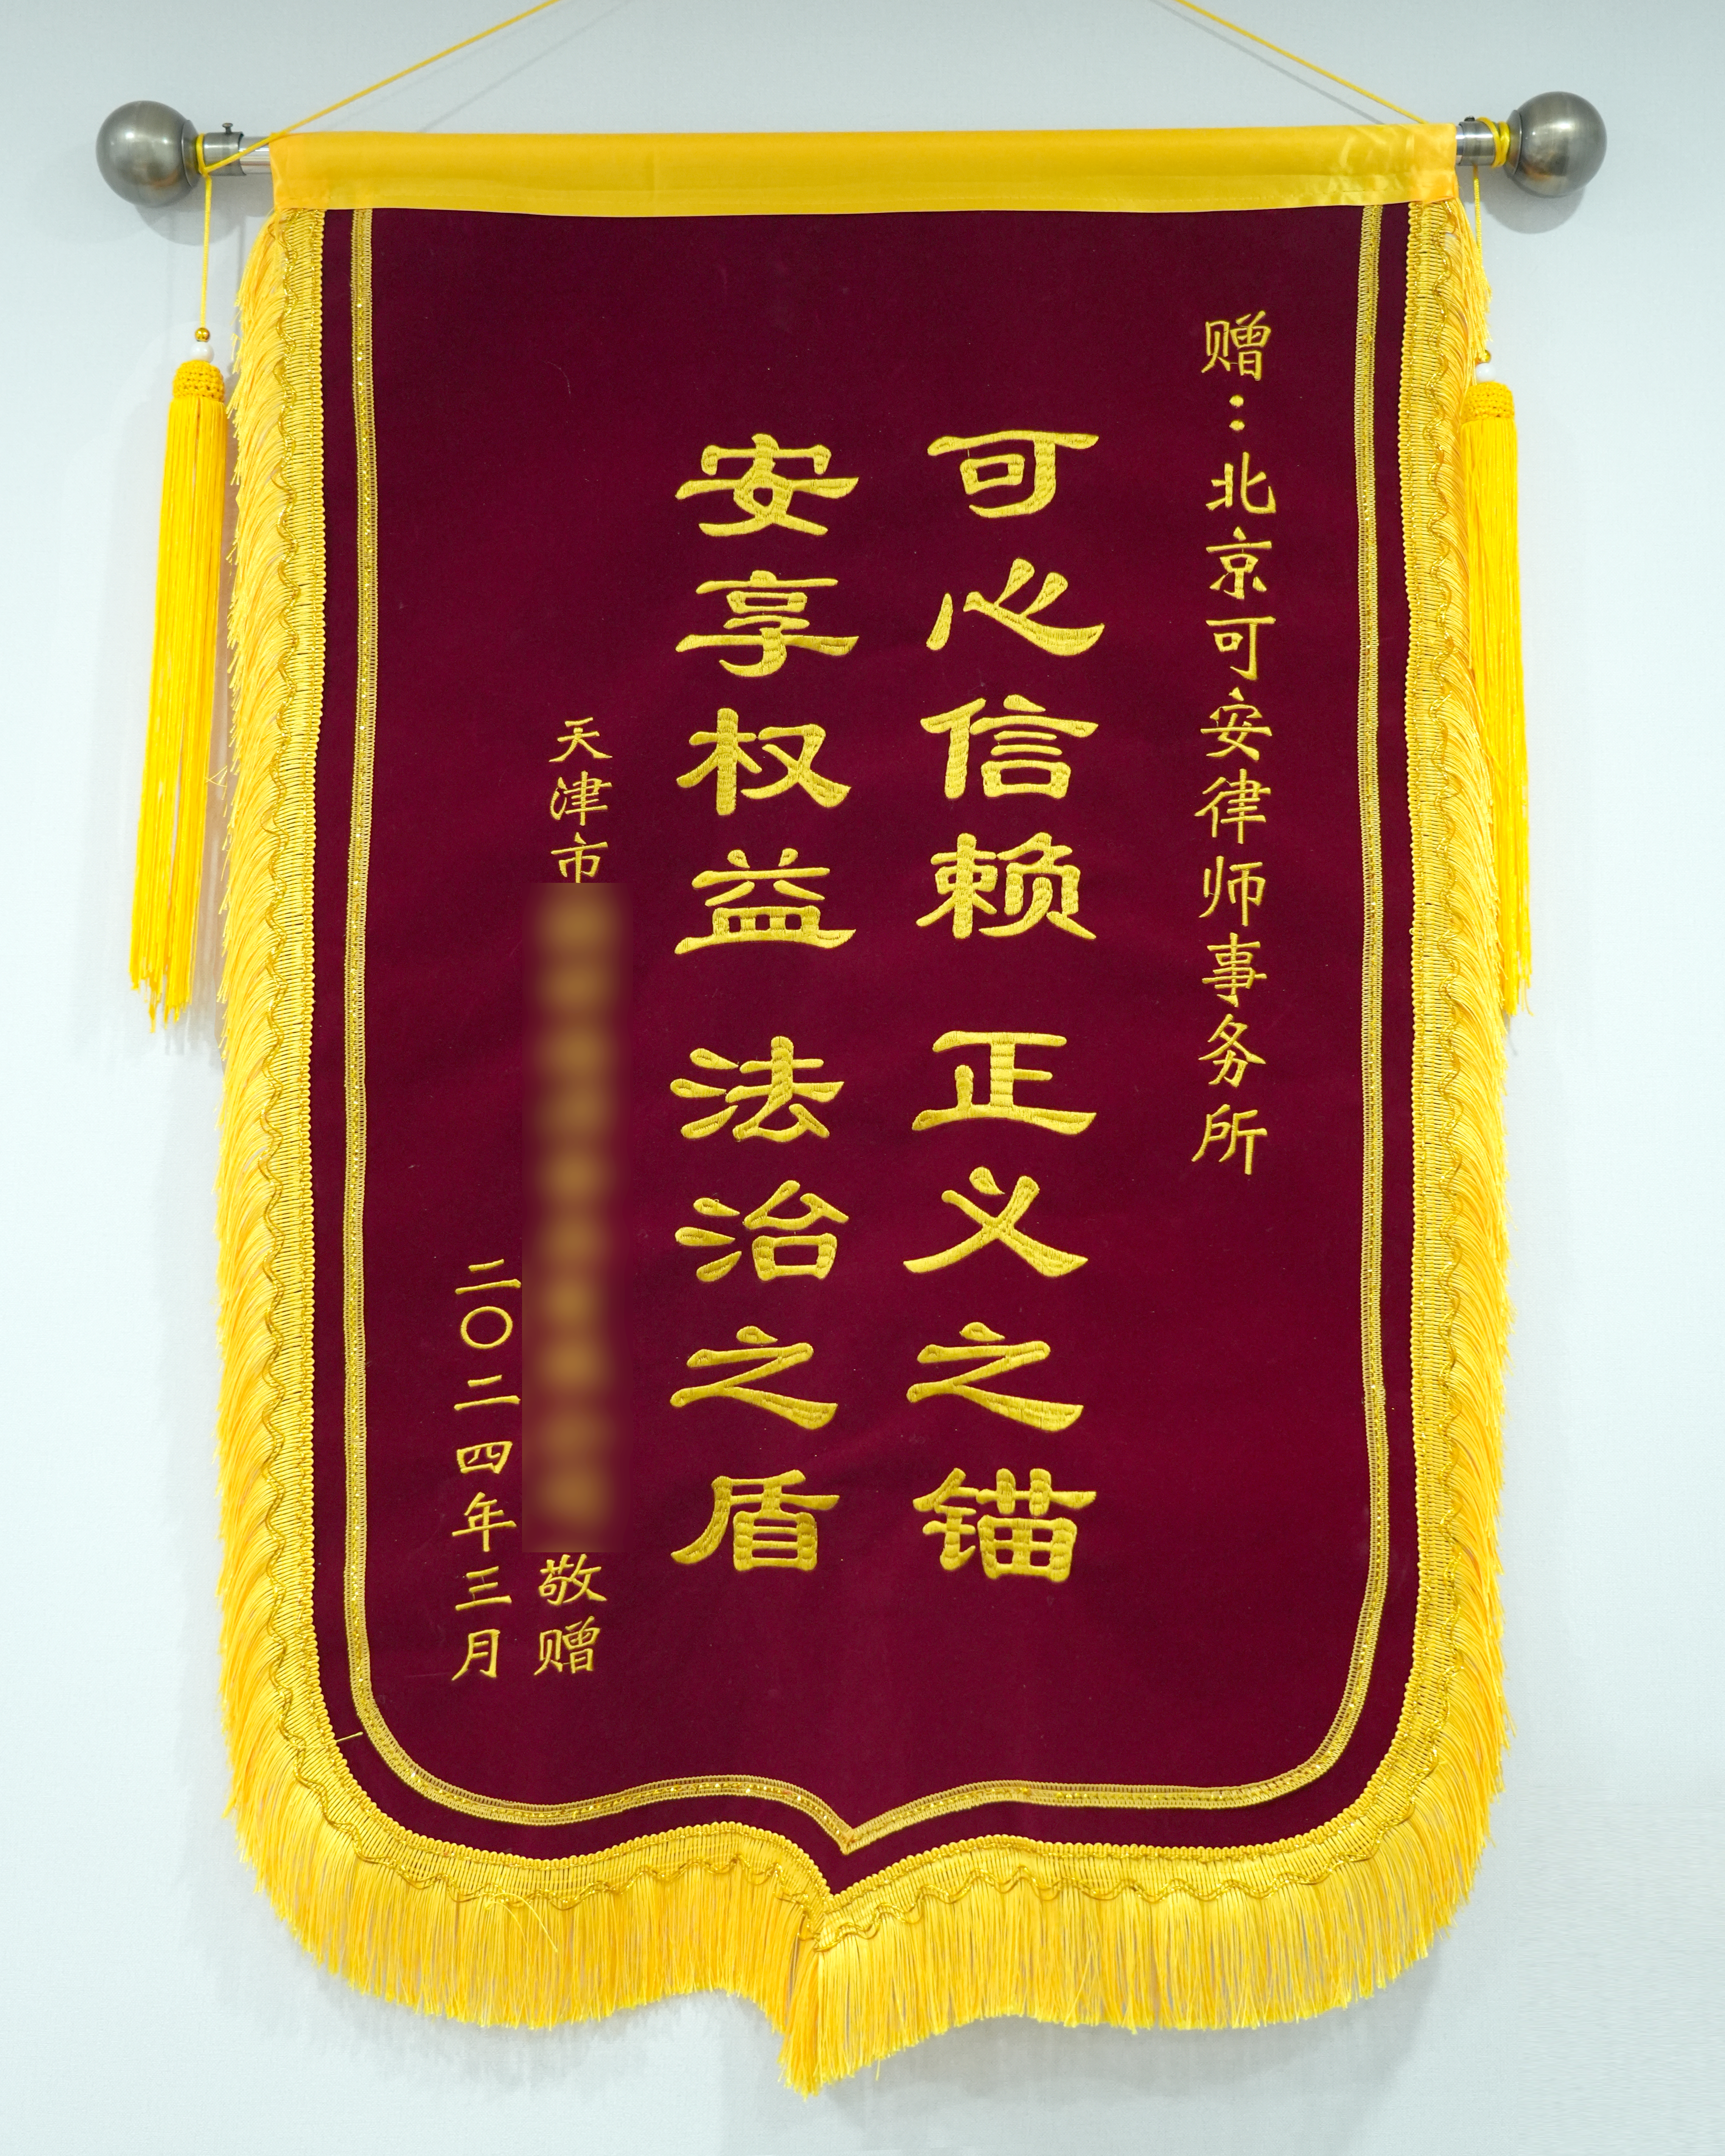 赠：北京可安律师事务所
可心信赖 正义之锚
安享权益 法治之盾
天津市
敬赠
二〇二四年三月